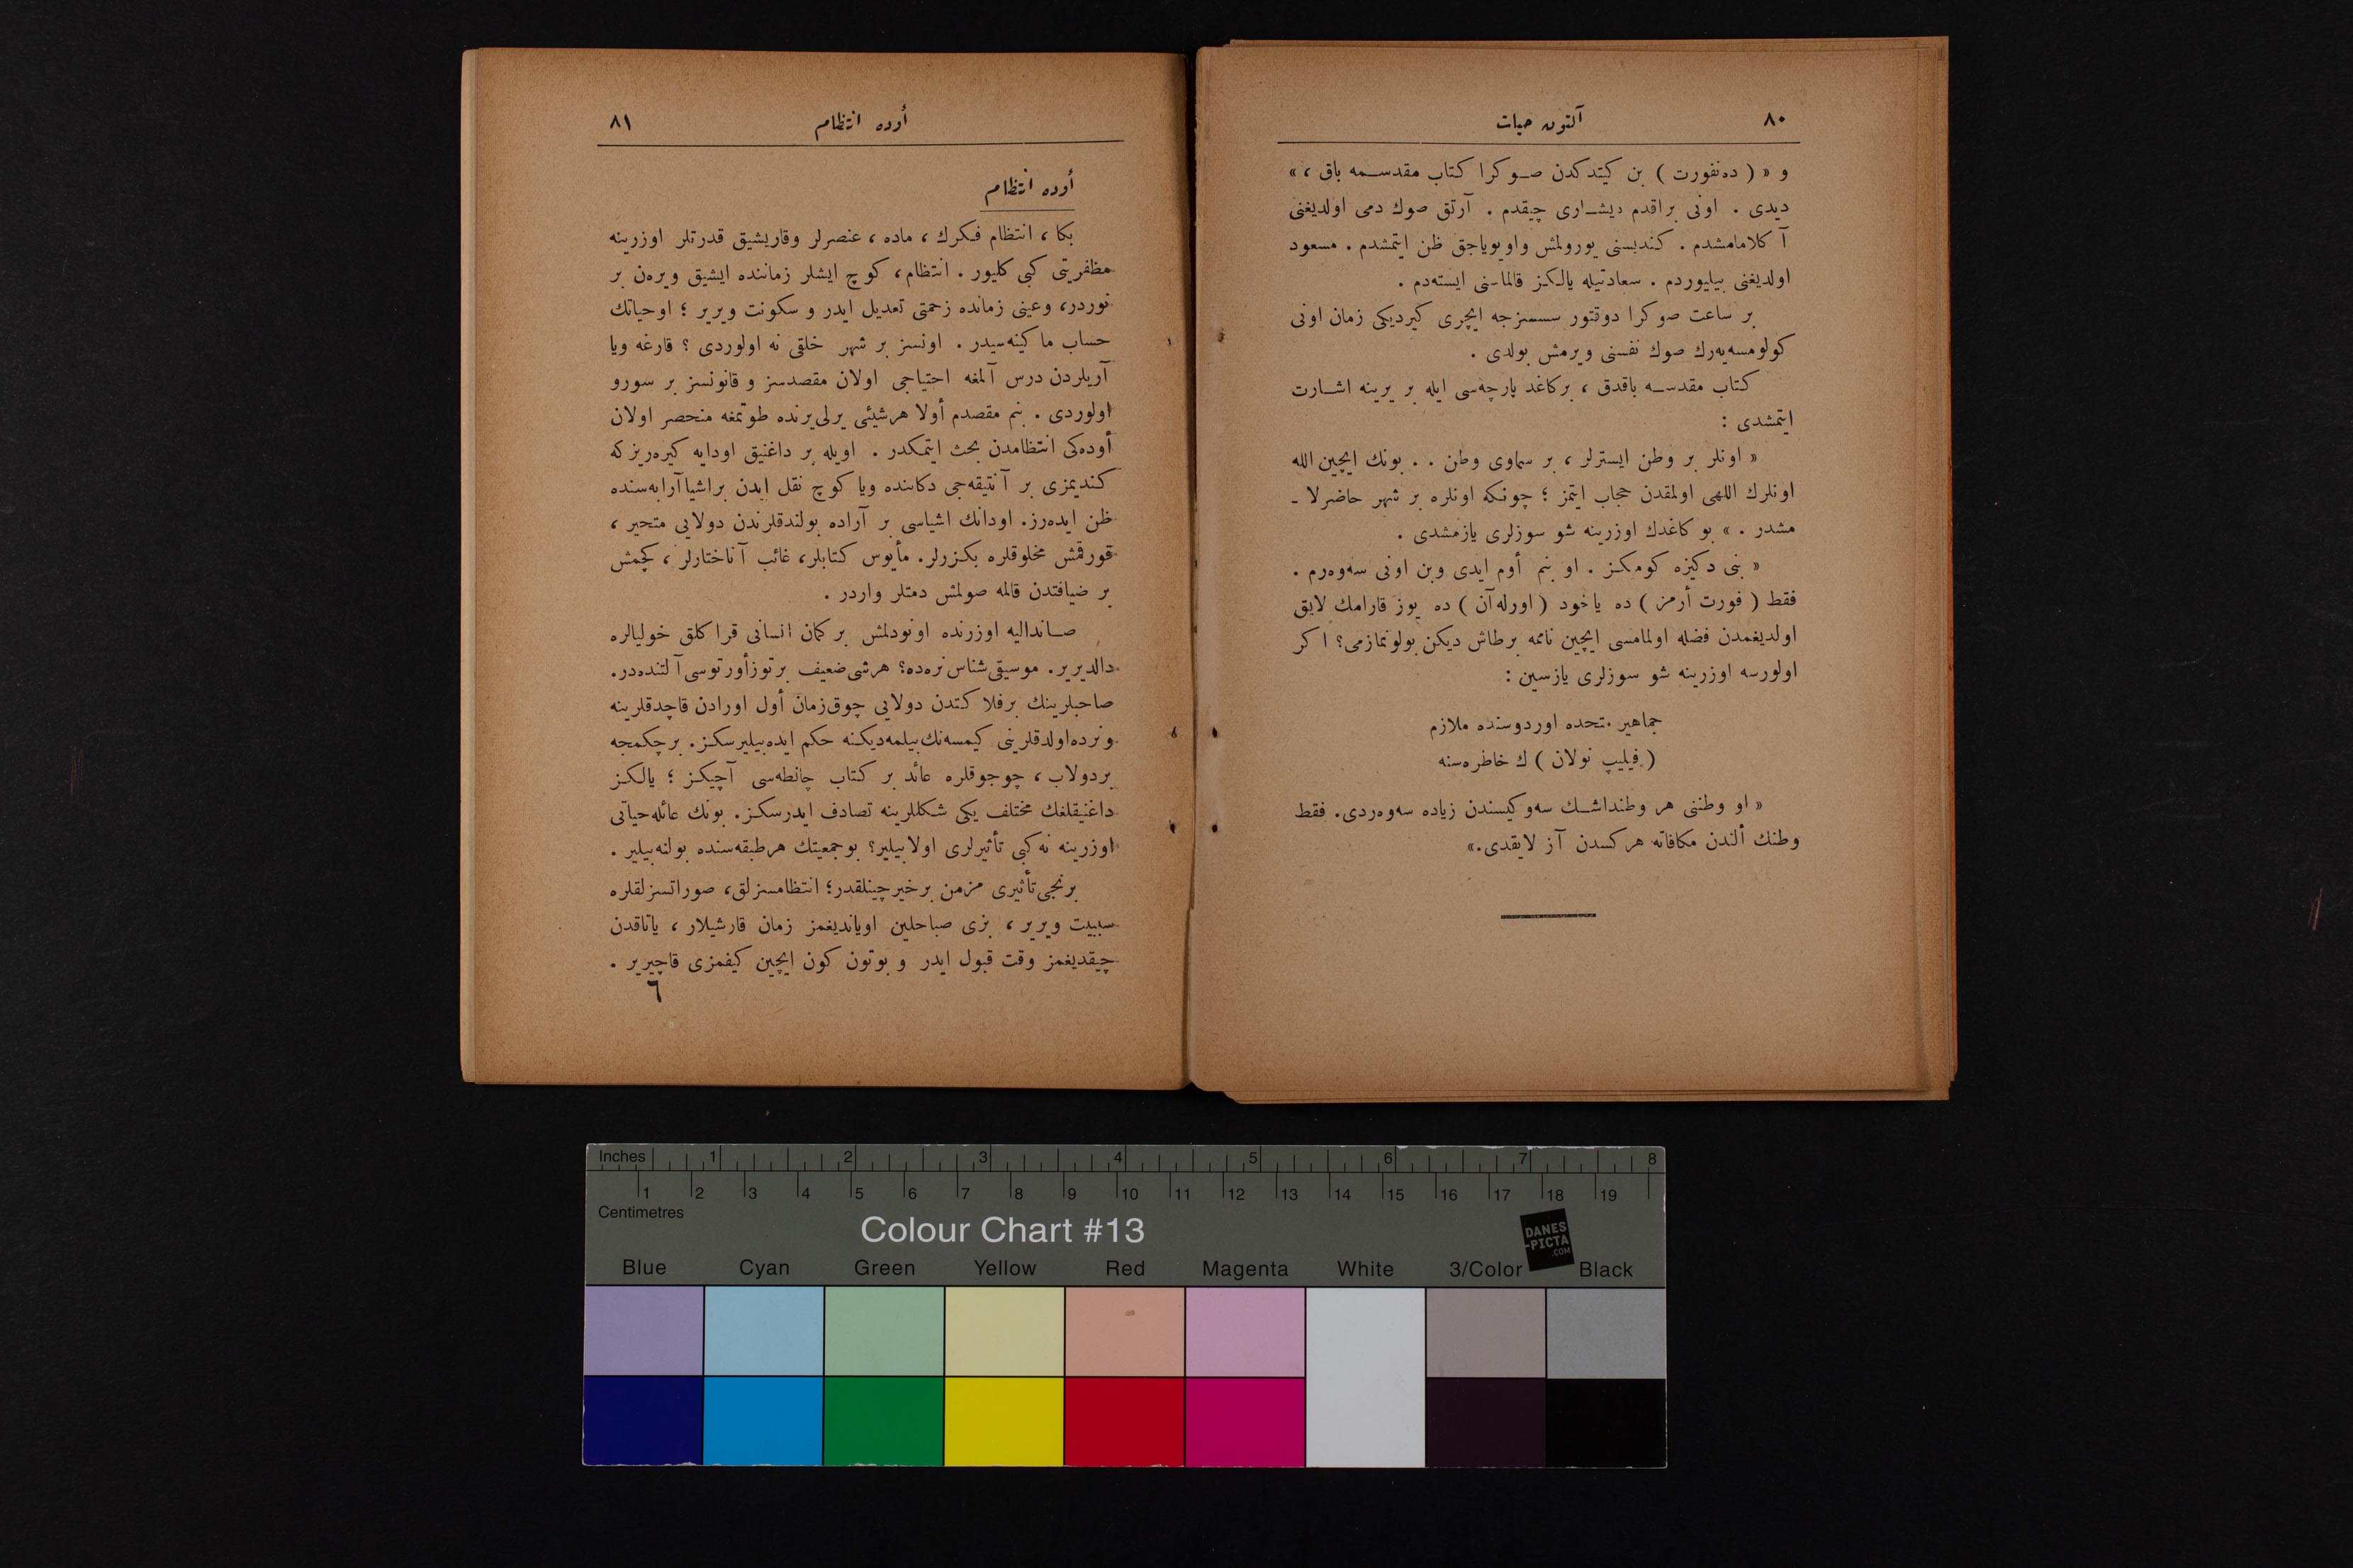 ٨٠
آلتون حیات
و « ( ده‌نفورت ) بن کیتدکدن صوکرا کتاب مقدسمه باق ، »
دیدی . اونی براقدم دیشاری چیقدم . آرتق صوك دمی اولدیغنی
آ کلامامشدم . کندیسنی یورولمش واویویاجق ظن ایتمشدم . مسعود
اولدیغنی بیلیوردم . سعادتیله یالکز قالماسنی ایسته‌دم .
بر ساعت صوکرا دوقتور سسزجه ایچری کیردیکی زمان اونی
کولومسه‌یه‌رك صوك نفسنی ویرمش بولدی .
کتاب مقدسه باقدق ، برکاغد پارچه‌سی ایله بر یرینه اشارت
ایتمشدی :
« اونلر بر وطن ایسترلر ، بر سماوی وطن . . بونك ایچین الله
اونلرك اللهی اولمقدن حجاب ایتمز ؛ چونکه اونلره بر شهر حاضرلا -
مشدر . » بو کاغدك اوزرینه شو سوزلری یازمشدی .
« بنی دکیزه کومکز . او بنم أوم ایدی وبن اونی سه‌وه‌رم .
فقط ( فورت أرمز ) ده یاخود ( اورله‌آن ) ده یوز قارامك لایق
اولدیغمدن فضله اولمامسی ایچین نامه برطاش دیکن بولونمازمی؟ اکر
اولورسه اوزرینه شو سوزلری یازسین :
جماهیر متحده اوردوسنده ملازم
( فیلیپ نولان ) ك خاطره‌سنه
« او وطننی هر وطنداشك سه‌وکیسندن زیاده سه‌وه‌ردی. فقط
وطنك ألندن مکافاته هرکسدن آز لایقدی.»
أوده انتظام
٨١
أوده انتظام
بکا ، انتظام فکرك ، ماده ، عنصرلر وقاریشیق قدرتلر اوزرینه
مظفریتی کبی کلیور . انتظام، کوچ ایشلر زماننده ایشیق ویره‌ن بر
نوردر، وعینی زمانده زحمتی تعدیل ایدر و سکونت ویریر ؛ اوحیاتك
حساب ماکینه‌سیدر . اونسز بر شهر خلقی نه اولوردی ؟ قارغه ویا
آریلردن درس آلمغه احتیاجی اولان مقصدسز و قانونسز بر سورو
اولوردی . بنم مقصدم أولا هرشیئی یرلی‌یرنده طوتمغه منحصر اولان
أوده‌کی انتظامدن بحث ایتمکدر . اویله بر داغنیق اودایه کیره‌ریزکه
کندیمزی بر آنتیقه‌جی دکاننده ویا کوچ نقل ایدن براشیاآرابه‌سنده
ظن ایده‌رز. اودانك اشیاسی بر آراده بولندقلرندن دولایی متحیر ،
قورقمش مخلوقلره بکزرلر. مأیوس کتابلر، غائب آناختارلر ، کچمش
بر ضیافتدن قالمه صولمش دمتلر واردر .
صاندالیه اوزرنده اونودلمش بر کمان انسانی قراکلق خولیالره
دالدیریر. موسیقی‌شناس نره‌ده؟ هرشی ضعیف برتوزأورتوسی آلتنده‌در.
صاحبلرینك برفلاکتدن دولایی چوق‌زمان أول اورادن قاچدقلرینه
ونرده‌اولدقلرینی کیمسه‌نك بیلمه‌دیکنه حکم ایده‌بیلیرسکز. برچکمجه
بردولاب ، چوجوقلره عائد بر کتاب چانطه‌سی آچیکز ؛ یالکز
داغنیقلغك مختلف یکی شکللرینه تصادف ایدرسکز. بونك عائله‌حیاتی
اوزرینه نه کبی تأثیرلری اولابیلیر؟ بوجمعیتك هرطبقه‌سنده بولنه‌بیلیر .
برنجی تأثیری مزمن برخیرچینلقدر؛ انتظامسزلق، صوراتسزلقلره
سببیت ویریر ، بزی صباحلین اویاندیغمز زمان قارشیلار ، یاتاقدن
چیقدیغمز وقت قبول ایدر و بوتون کون ایچین کیفمزی قاچیریر .
٦
Inches 1 2 3 4 5 6 7 8
1 2 3 4 5 6 7 8 9 10 11 12 13 14 15 16 17 18 19
Centimetres
Colour Chart #13
DANES
-PICTA
.COM
Blue Cyan Green Yellow Red Magenta White 3/Color Black